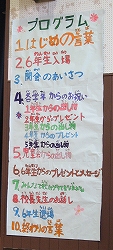 プログラム
1.はじめの言葉
2.6年生入場
3.開会のあいさつ
4.各学年からのお祝い
1年生からの出し物
2年生からプレゼント
3年生からの出し物
4年生からのプレゼント
5年生からの出し物
5.先生からの出し物
6.6年生からのプレゼントとメッセージ
8.校長先生のお話し
9.6年生退場
10.終わりの言葉